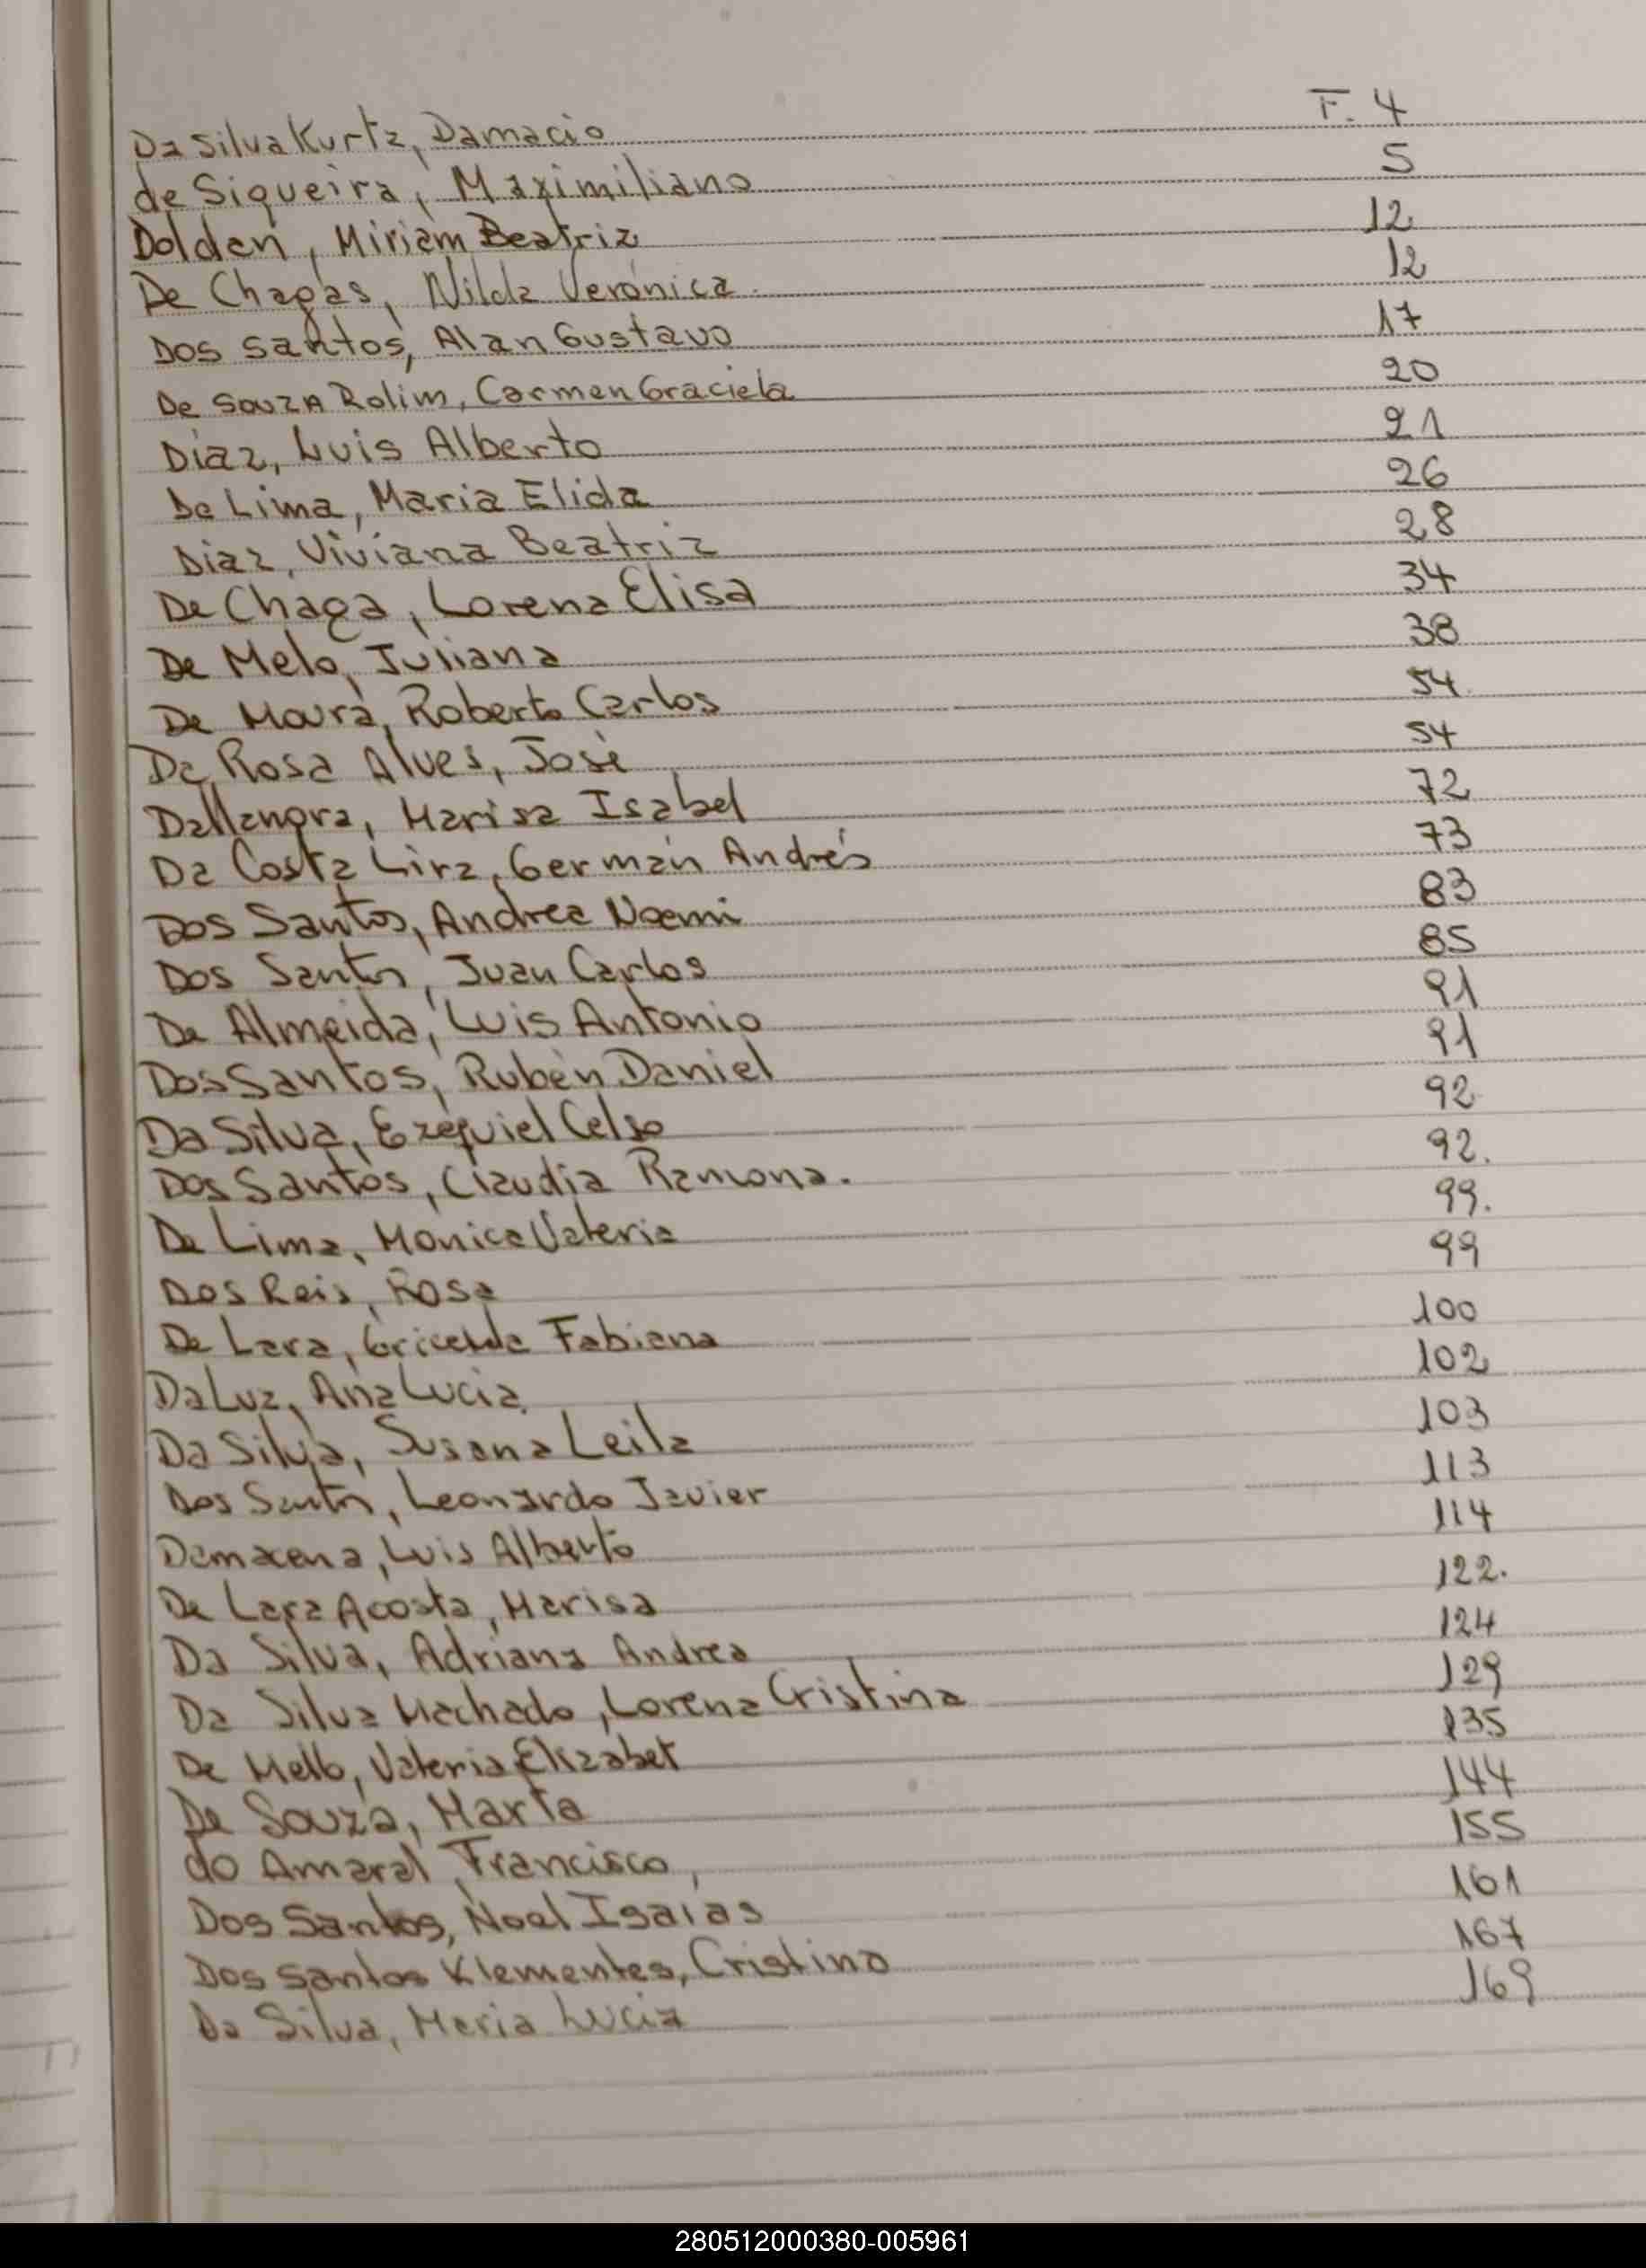 Da Silva Kurtz, Damacio F. 4
de Siqueira, Maximiliano 5
Dolden, Miriam Beatriz 12
De Chagas, Nilda Verónica 12
Dos Santos, Alan Gustavo 17
De Souza Rolim, Carmen Graciela 20
Diaz, Luis Alberto 21
De Lima, Maria Elida 26
Diaz, Viviana Beatriz 28
De Chaga, Lorena Elisa 34
De Melo, Juliana 38
De Moura, Roberto Carlos 54
Da Rosa Alves, José 54
Dallangra, Marisa Isabel 72
Da Costa Lira, Germán Andrés 73
Dos Santos, Andrea Noemi 83
Dos Santos, Juan Carlos 85
De Almeida, Luis Antonio 91
Dos Santos, Rubén Daniel 91
Da Silva, Ezequiel Celso 92
Dos Santos, Claudia Ramona. 92.
De Lima, Monica Valeria 99.
Dos Reis, Rosa 99
De Lara, Griselda Fabiana 100
Da Luz, Ana Lucia 102
Da Silva, Susana Leila 103
Dos Santos, Leonardo Javier 113
Damacena, Luis Alberto 114
De Lara Acosta, Marisa 122.
Da Silva, Adriana Andrea 124
Da Silva Machado, Lorena Cristina 129
De Mello, Valeria Elizabet 135
De Souza, Marta 144
do Amaral, Francisco, 155
Dos Santos, Noel Isaías 161
Dos Santos Klementes, Cristino 167
Da Silva, Maria Lucia 169
280512000380-005961